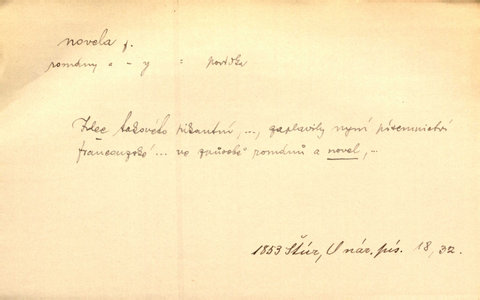 novela f.
romány a - y = povídka
Idee takového pikantní, ..., zaplavily nyní písemnictví
francouzské ... ve způsobě románů a novel, ...
1853 Štúr, O nár. pís. 18, 32.